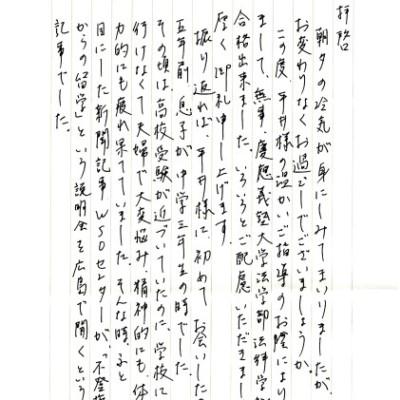 拝啓
朝夕の冷気が身にしみてまいりましたが、
お変わりなくお過ごしでございましょうか。
この度、平井様の温かいご指導のお陰により
まして、無事、慶應義塾大学法学部法律学科
合格出来ました。いろいろとご配慮いただきま
厚く御礼申し上げます。
振り返れば、平井様に初めてお会いした
五年前、息子が中学三年生の時でした。
その頃は、高校受験が近づいていたのに、学校に
行けなくて夫婦で大変悩み、精神的にも、体
力的にも疲れ果てていました。そんな時、ふと
目にした新聞記事、WSOセンターが、「不登校
からの留学」という説明会を広島で開くという
記事でした。